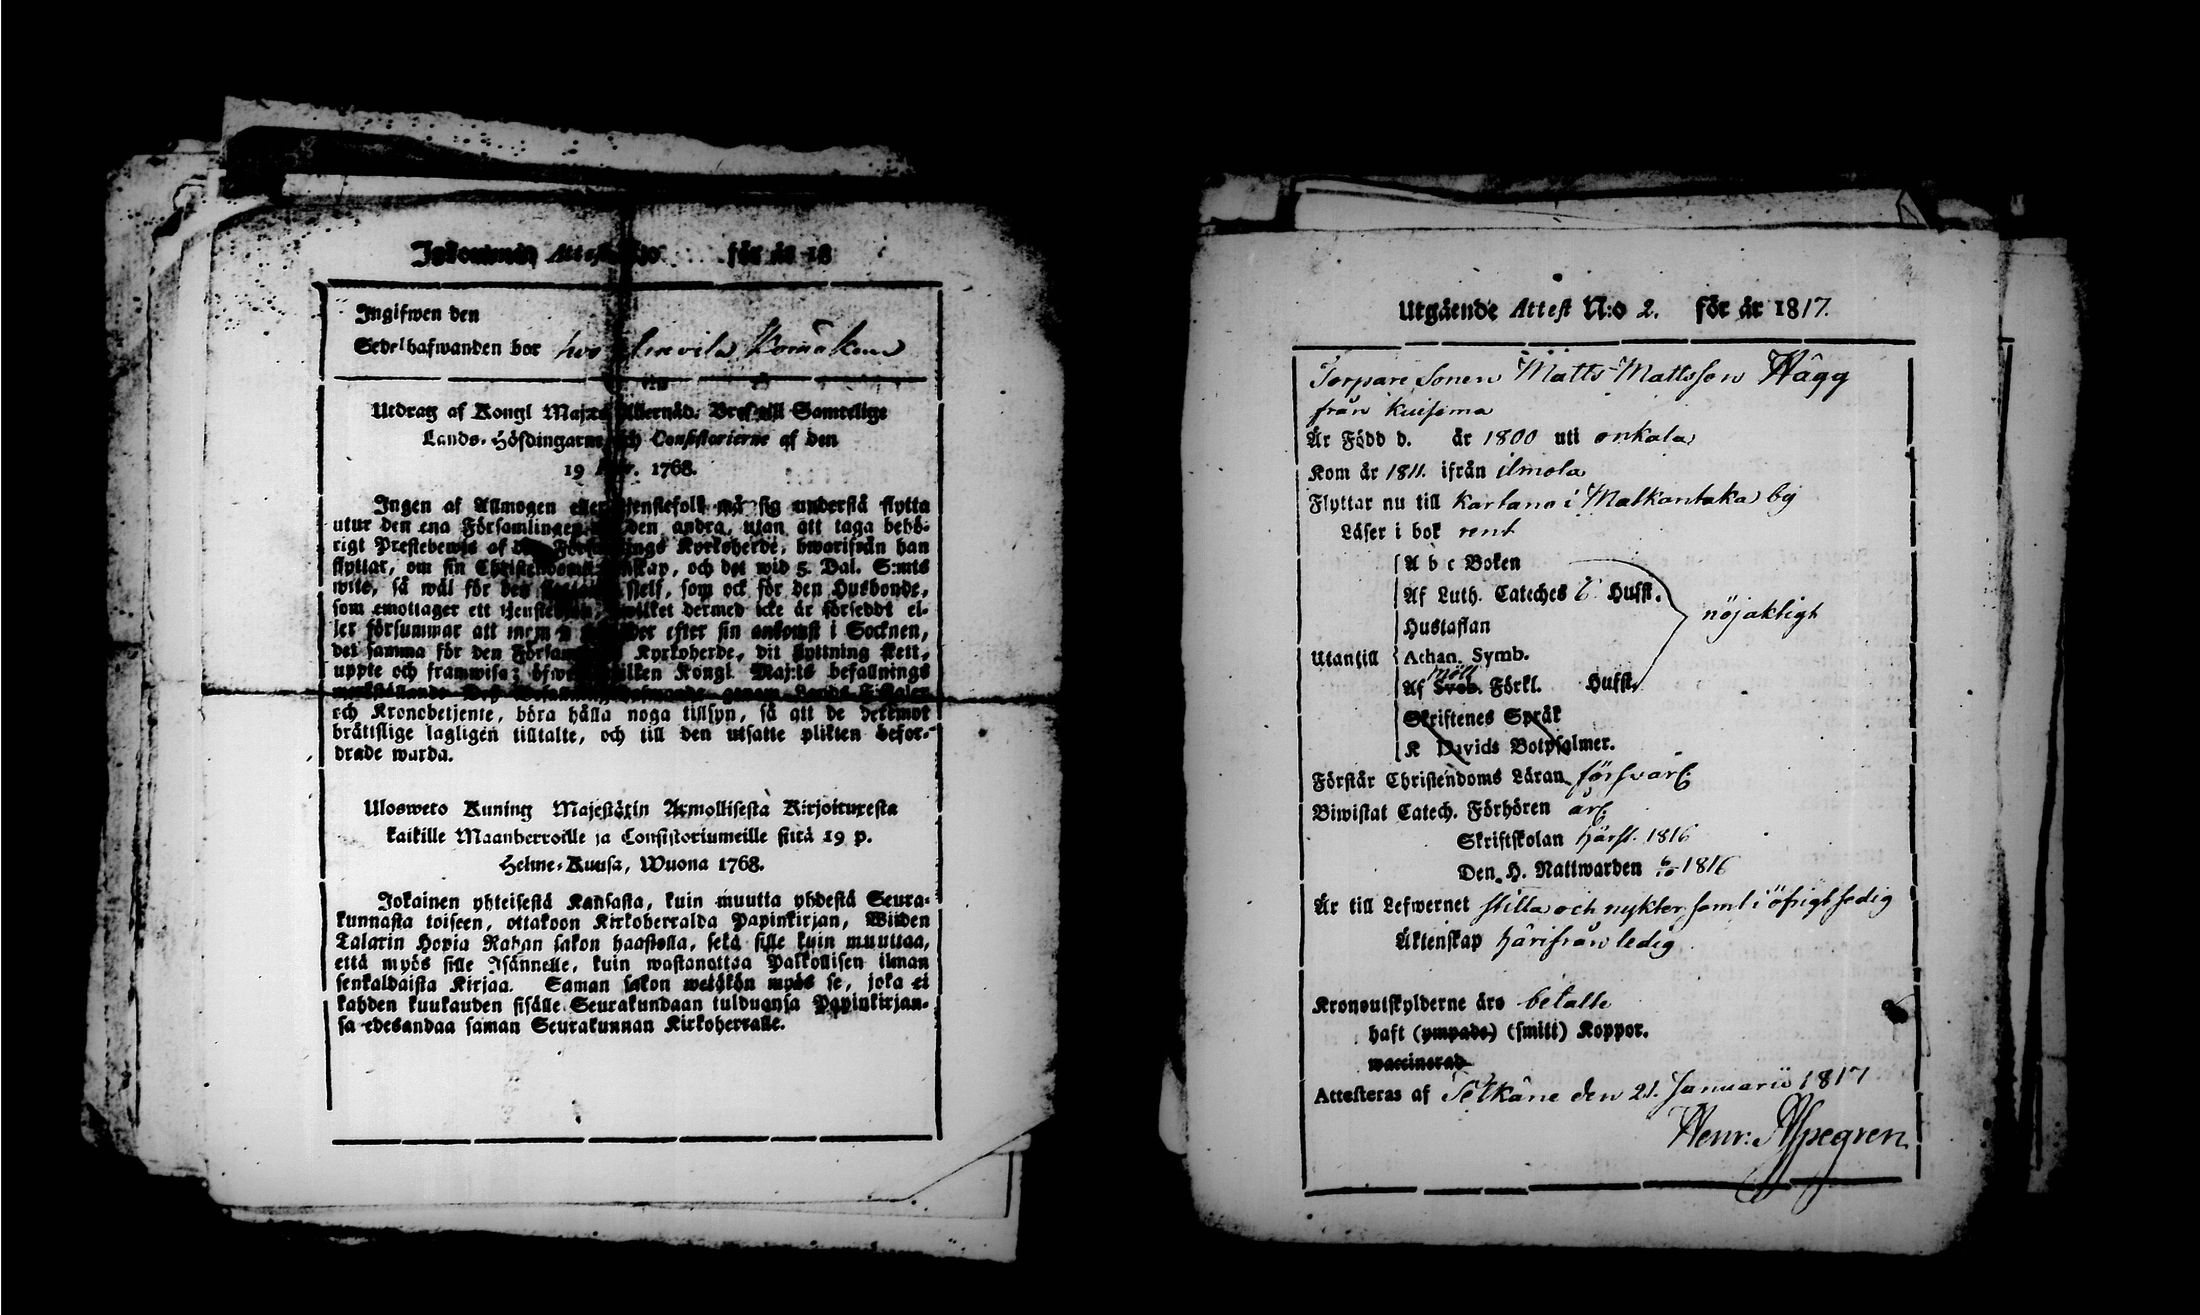 Inkommen Attest N:o för år 18
Ingifwen den
Sedelhafwanden bor hos
Utdrag af Kongl Maj:ts Allernåd. Bref till Samtelige
Lands-Höfdingarne och Consistorierne af den
19 Febr. 1768.
Ingen af Allmogen eller tjenstefolk må sig understå flytta
utur den ena Församlingen i den andra, utan att taga behö-
rigt Prestebewis af den Församlings Kyrkoherde, hwarifrån han
flyttar, om sin Christendoms kunskap, och det wid 5. Dal. S:mts
wite, så wäl för den flyttande sielf, som ock för den Husbonde,
som emottager ett tjenstehjon, hwilket dermed icke är försedt el-
ler försummar att inom 2 månader efter sin ankomst i Socknen,
det samma för den Församlings Kyrkoherde, dit flyttning skett,
uppte och framwisa; öfwer hwilken Kongl. Maj:ts befallnings
werkställande Dess Befallningshafwande genom Lands-Fiskaler
och Kronobetjente, böra hålla noga tillsyn, så att de deremot
bråttslige lagligen tilltalte, och till den utsatte plikten befor-
drade warda.
Ulosweto Kuning Majestätin Armollisesta Kirjoituxesta
kaikille Maanherroille ja Consistoriumeille siitä 19 p.
Helme-Kuusa, Wuona 1768.
Jokainen yhteisestä Kansasta, kuin muutta yhdestä Seura-
kunnasta toiseen, ottakoon Kirkoherralda Papinkirjan, Wiiden
Talarin Hopia Rahan sakon haastolla, sekä sille kuin muuttaa,
että myös sille Isännelle, kuin wastanottaa Palkollisen ilman
senkaldaista Kirjaa. Saman sakon wetäkön myös se, joka ei
kahden kuukauden sisälle Seurakundaan tulduansa Papinkirjan-
sa edesandaa saman Seurakunnan Kirkoherralle.
Utgående Attest N:o 2. för år 1817.
Torpare Sonen Matts Mattsson Hägg
från Kuisema
Är Född d. år 1800 uti onkala
Kom år 1811. ifrån ilmola
Flyttar nu till Kartano i Malkantaka by
Läser i bok rent
A b c Boken
Af Luth. Cateches & Husst.
Hustaflan
Utantill Athan. Symb.
Möll
Af Sveb. Förkl. Husst.
nöjaktigt
Skriftenes Språk
K Davids Botpsalmer.
Förstår Christendoms Läran försvarl:
Biwistat Catech. Förhören årl
Skriftskolan härst. 1816
Den H. Nattwarden 1816
Är till Lefwernet stilla och nykter samt i öfrigt sedig
Äktenskap härifrån ledig
Kronoutskylderne äro betalte
haft (ympade) (smitt) Koppor.
waccinerad
Attesteras af Pelkäne den 21. Januarii 1817
Henr: Aspegren